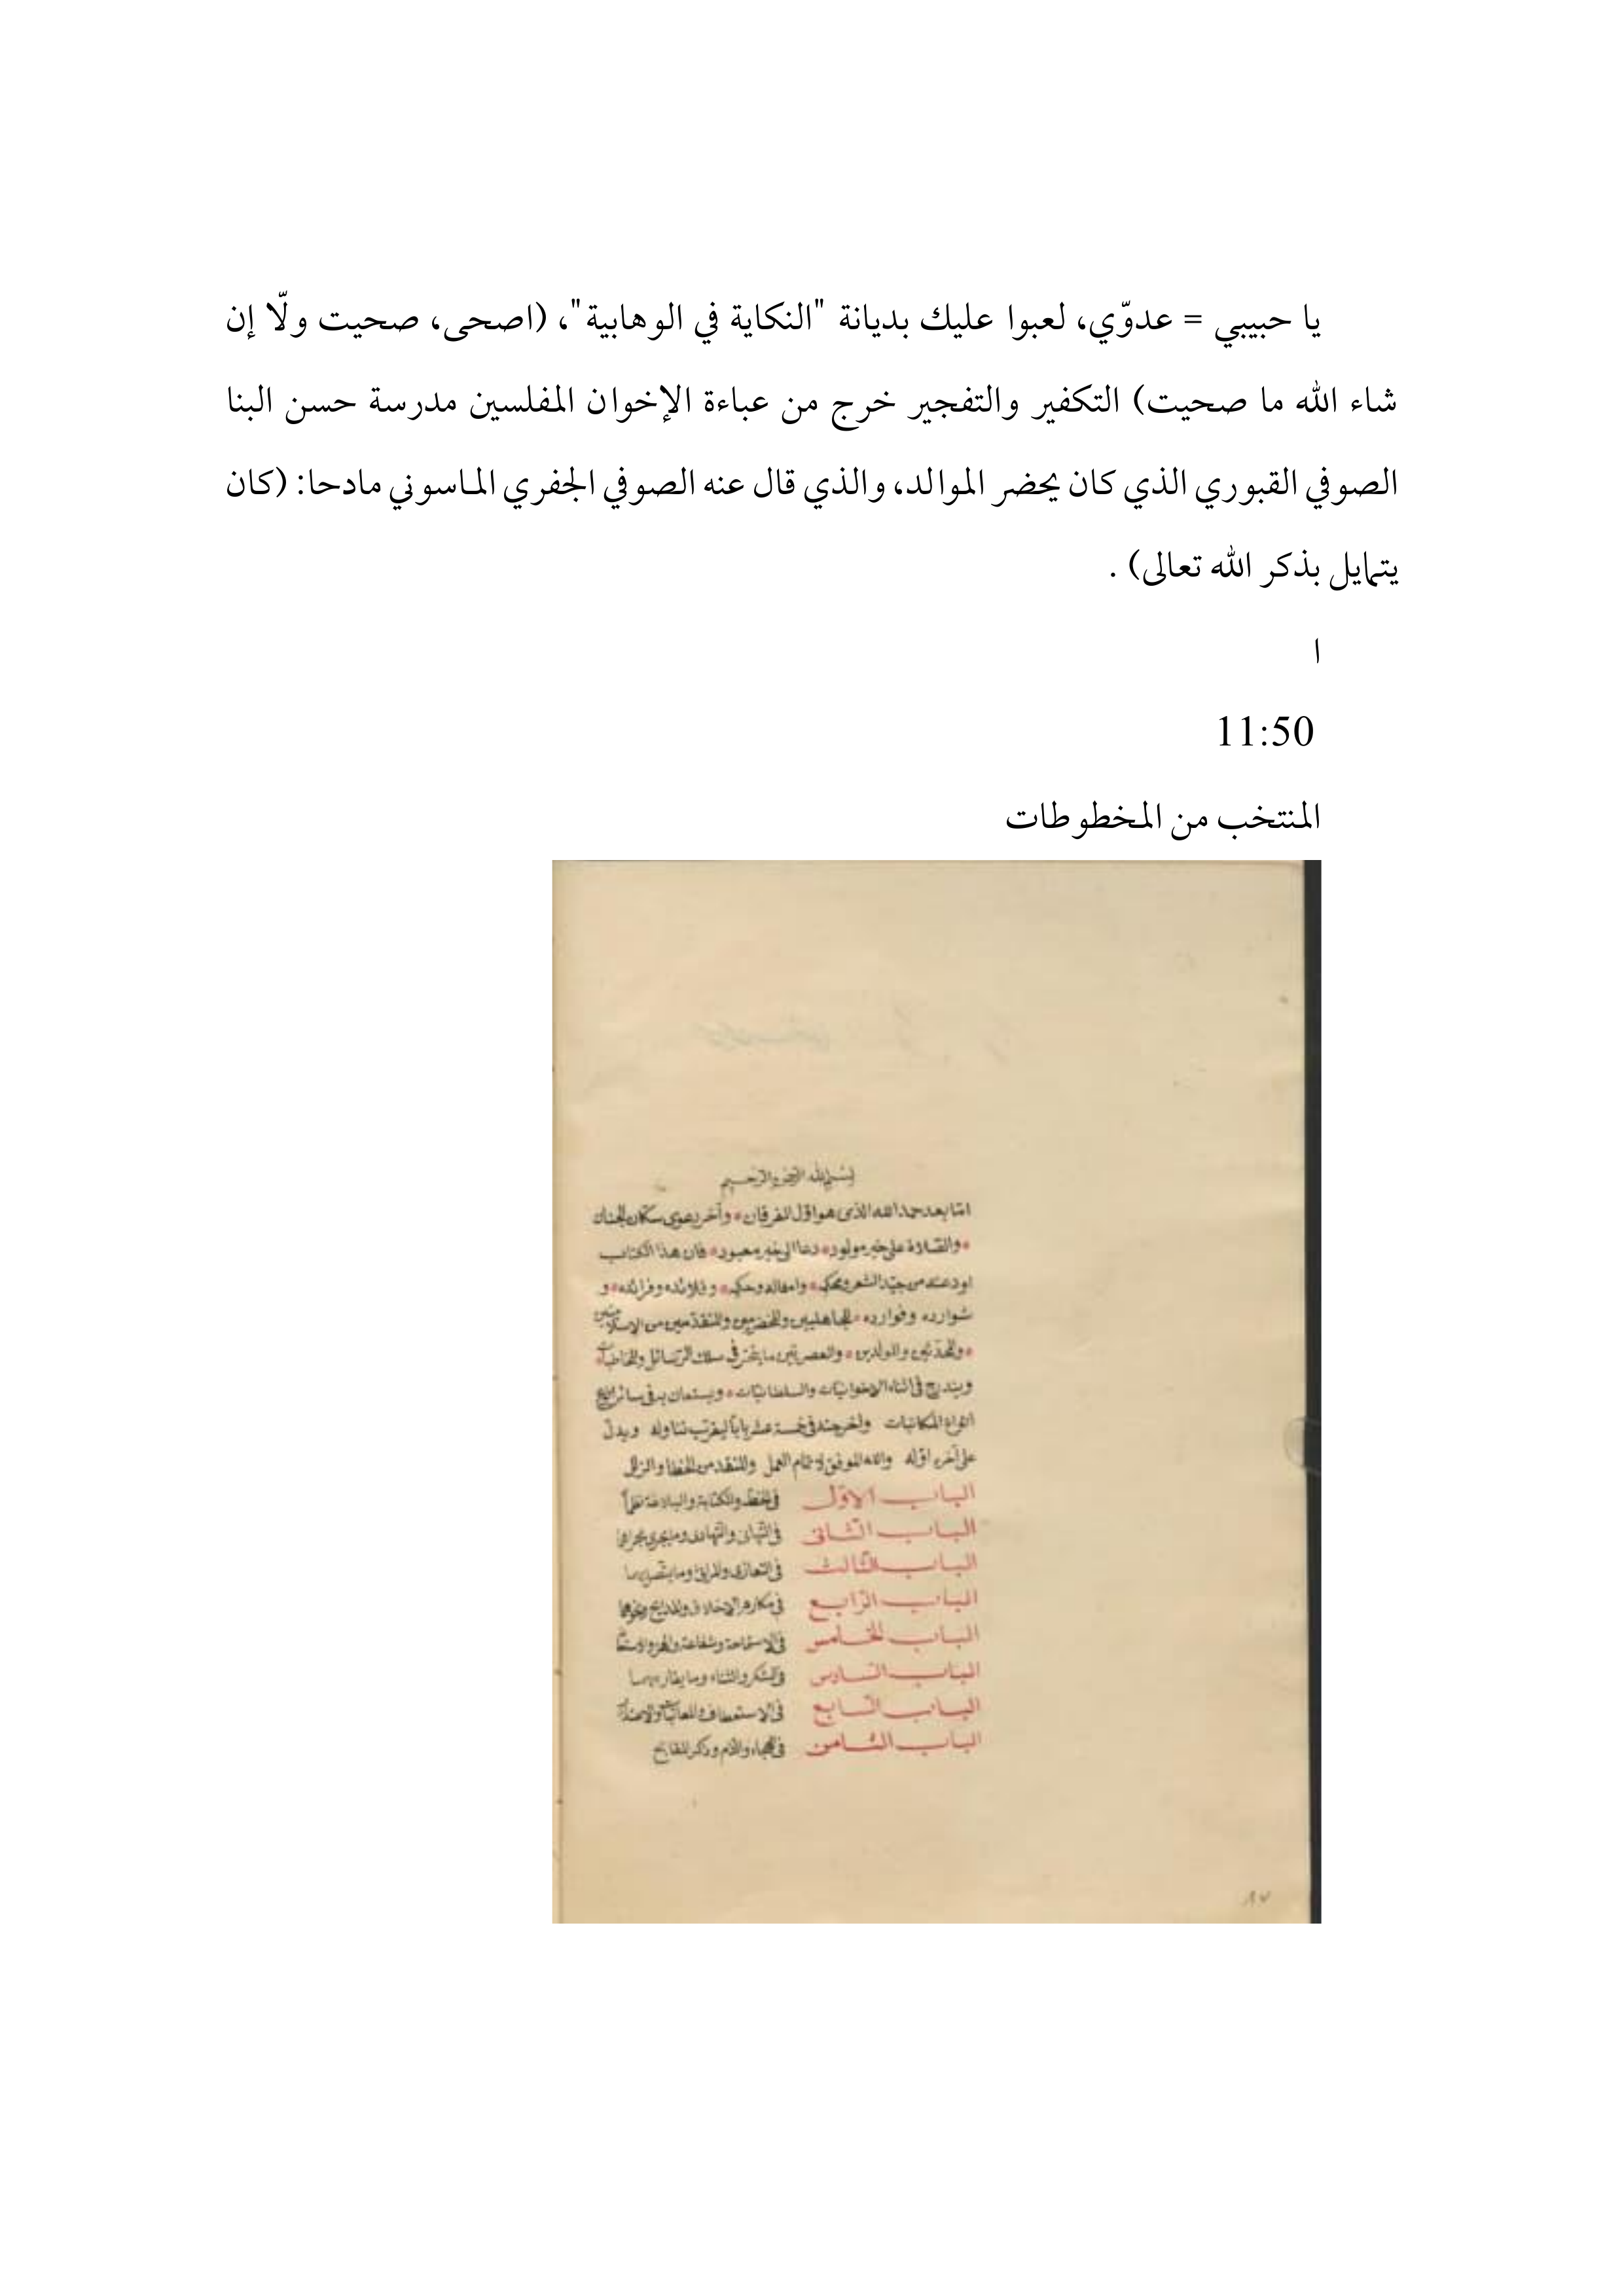 يا حبيبي = عدوّي، لعبوا عليك بديانة "النكاية في الوهابية"، (اصحى، صحيت ولّا إن
شاء الله ما صحيت) التكفير والتفجير خرج من عباءة الإخوان المفلسين مدرسة حسن البنا
الصوفي القبوري الذي كان يحضر الموالد، والذي قال عنه الصوفي الجفري الماسوني مادحا: (كان
يتمايل بذكر الله تعالى) .
ا
11:50
المنتخب من المخطوطات
بسم الله الرحمن الرحيم
اما بعد حمد الله الذى هو اول الفرقان وآخر دعوى سكان الجنان
والصلاة على خير مولود دعا الى خير معبود فان هذا الكتاب
اودعته من جيد الشعر ومحكه وامثاله وحكمه وقلائده وفرائده و
شوارده وفوارده للجاهليين والمخضرمين والمتقدمين من الاسلاميين
والمحدثين والمولدين والعصريين ما ينخرط فى سلك الرسائل والمخاطبات
ويندرج فى اثناء الاخوانيات والسلطانيات ويستعان به فى سائر
انواع المكاتبات واخرجته فى خمسة عشر بابا ليقرب تناوله ويدل
على آخره اوله والله الموفق لاتمام العمل والمنقذ من الخطا والزلل
الباب الاول فى الخط والكتابة والبلاغة
الباب الثانى فى التهانى والتهادى وما يجرى مجراها
الباب الثالث فى التعازى والمراثى وما يتصل بهما
الباب الرابع فى مكارم الاخلاق والمدايح ونحوها
الباب الخامس فى الاستماحة وشفاعة والهز
الباب السادس فى الشكر والثناء وما يقاربهما
الباب السابع فى الاستعطاف والمعاتبات والاعتذارات
الباب الثامن فى الهجاء والذم وذكر المقابح